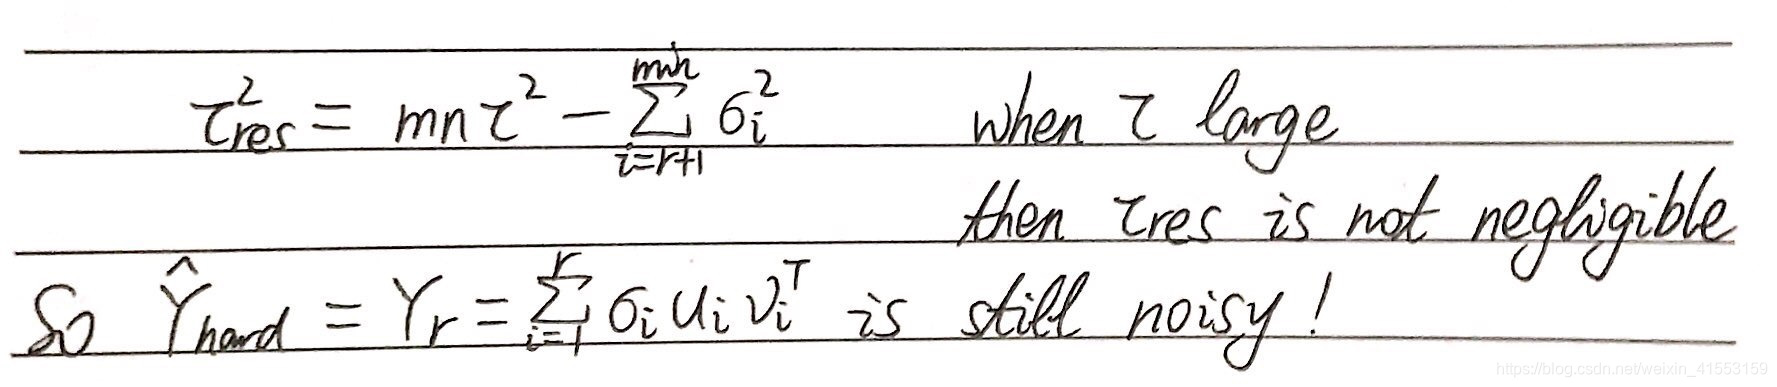 τ²res = mnτ² − Σ_{i=r+1}^{min} σᵢ² when τ large
then τres is not negligible
So Ŷhard = Yr = Σ_{i=1}^{r} σᵢ uᵢ vᵢᵀ is still noisy!
https://blog.csdn.net/weixin_41553159